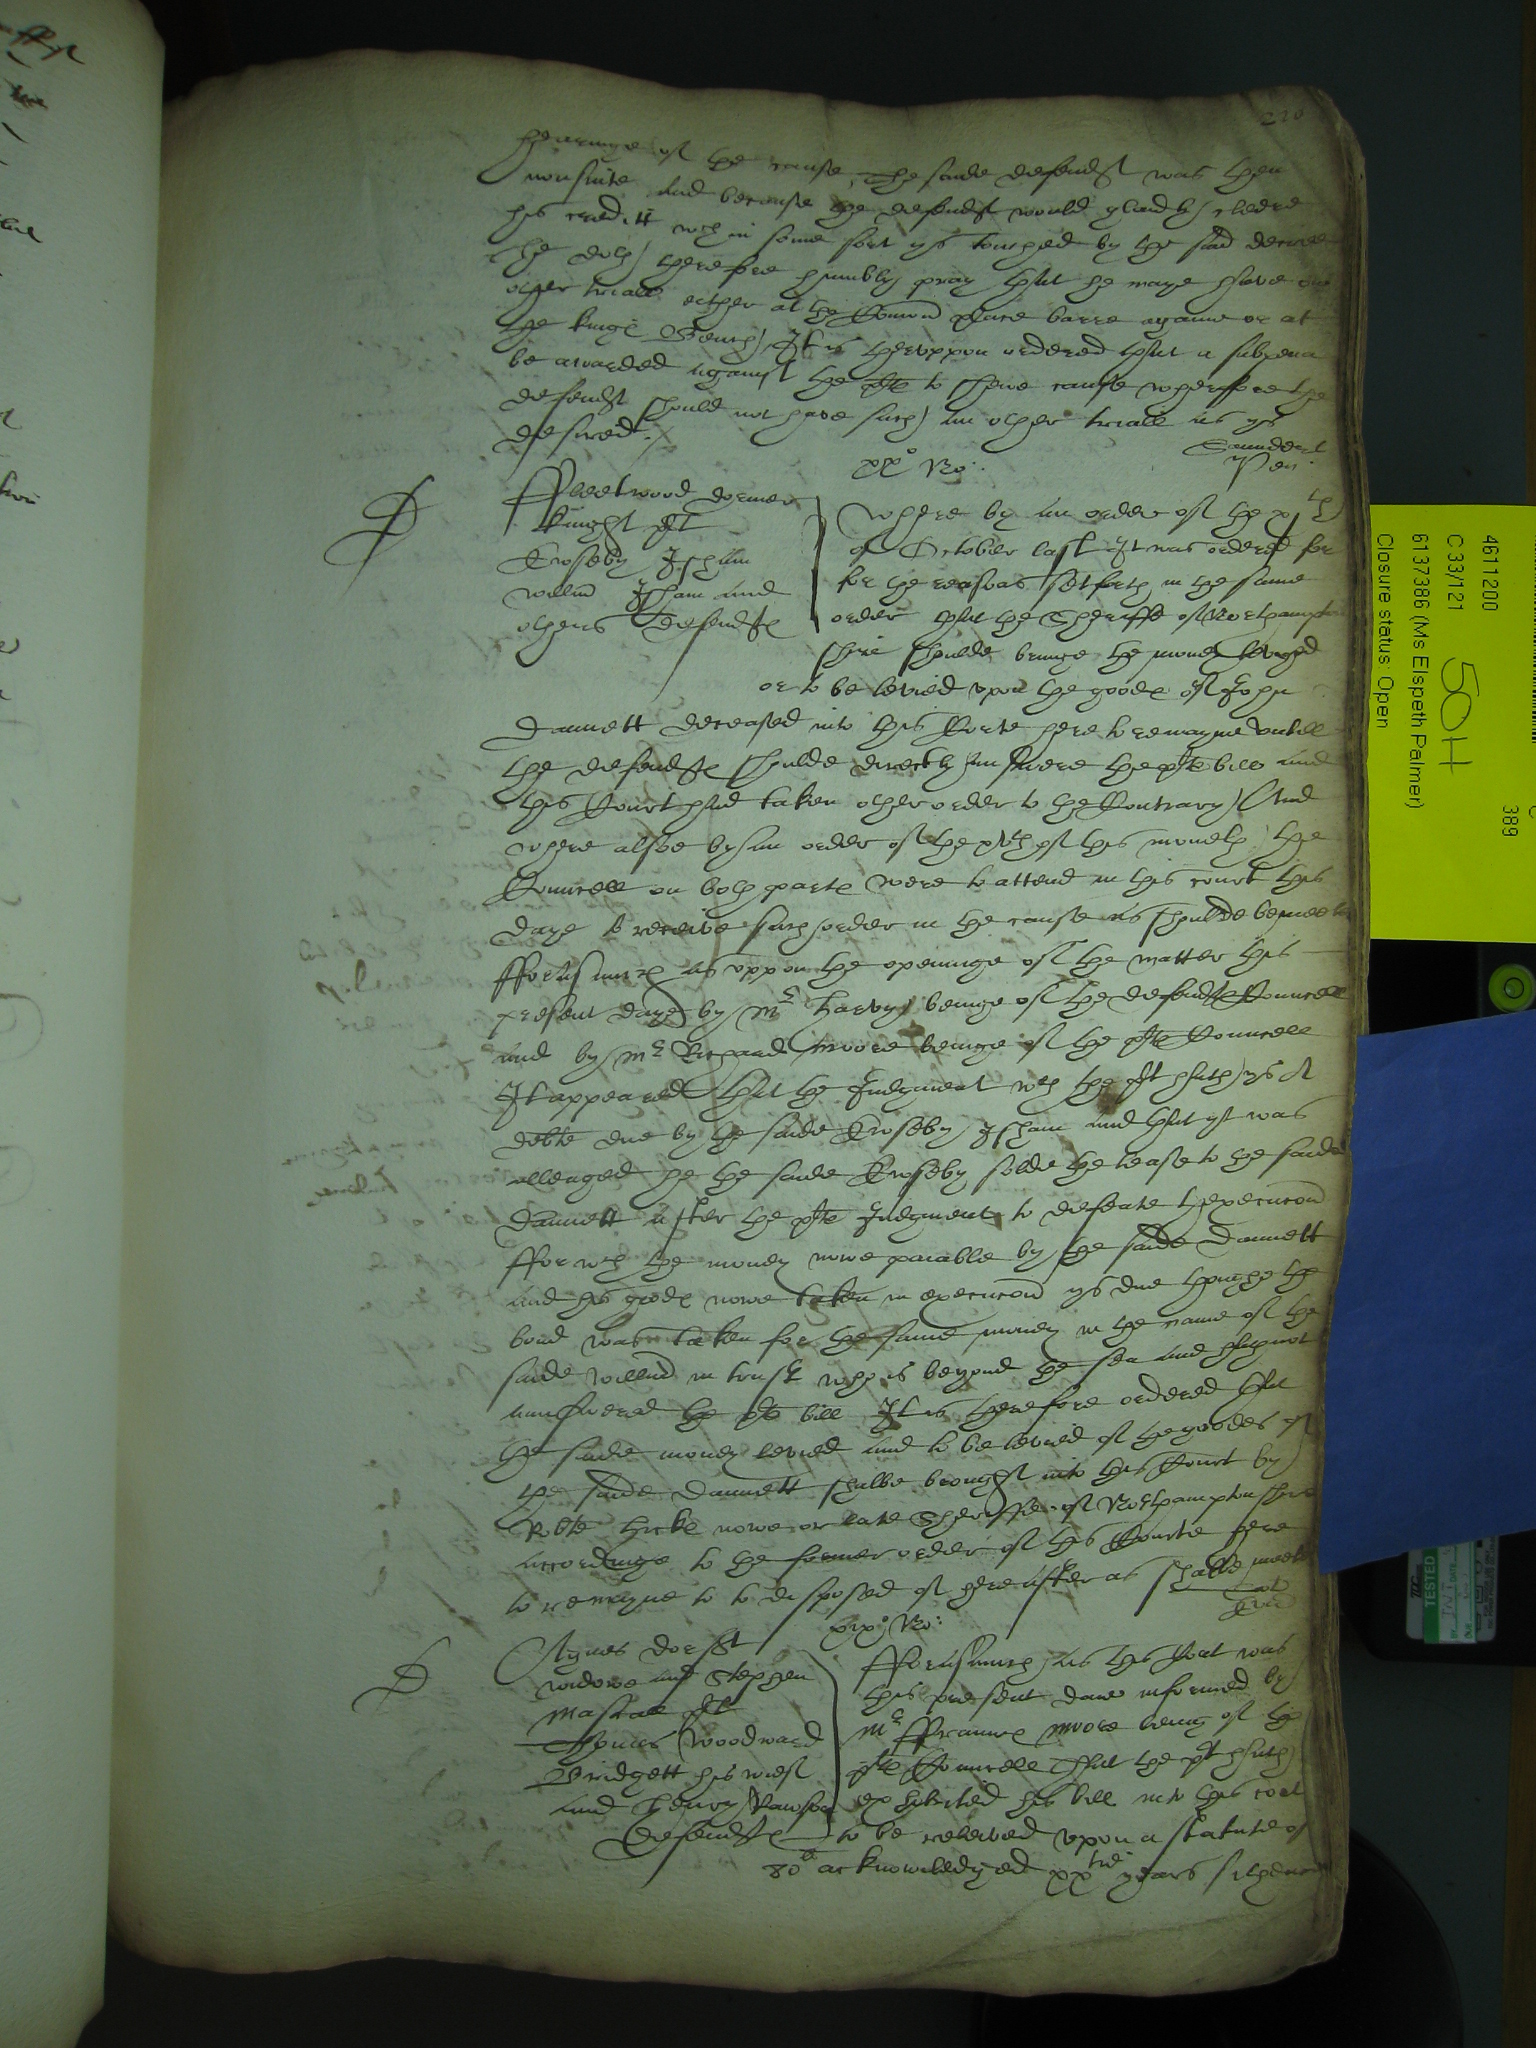 220
hearinge of the cause, The saide defendt was then
nonsuite And because the defendt would gladly cleere
his creditt wch in some sort ys touched by the said decree
he doth therefore humbly pray that he maye have
other triall either at the Comon place barre againe or at
the kinge Bench, It is theruppon ordered that a subpena
be awarded against the plte to shewe cause wherfore the
defendt should not have such an other triall as ys
desired./
xxo No:
Saunders
Pen:
D
Fleetwood dormer
knight plt
Euseby Isham
Willm Isham and
others defendte
Where by an order of the xjth
of October last It was ordered for
for the reasons sett forth in the same
order that the Sheriffe of Northampton
shire shoulde bringe the money levyed
or to be levied vpon the goode of John
Dannett deceased into this Corte here to remayne vntill
the defendte shoulde directly Answere the plte bill and
this Court had taken other order to the Contrary And
where alsoe by an order of the xvth of this moneth the
Councell on both parte were to attend in this court this
daye to receive such order in the cause as shoulde be meete
fforasmuch as vppon the openinge of the matter this
present daye by Mr Harvy beinge of the defendte Councell
and by Mr Richard Moore beinge of the plte Councell
It appeared that the Judgment wch the plt hath ys A
debte due by the saide Eusebey Isham and that yt was
alleaged he the saide Euseby solde the lease to the saide
Dannett after the plte Judgment to defeate thexecucion
ffor wch the money nowe paiable by the saide Dannett
and his goode nowe taken in execucion ys due thoughe the
bond was taken for the same money in the name of the
saide Willm in trust who is beyond the sea and hath not
aunswered the plte bill It is therefore ordered that
the saide money levied and to be levied of the goodes of
the saide Dannett shalbe brought into this Court by
Robte hicke nowe or late Sheriffe of Northampton shire
accordinge to the former order of this Courte here
to remayne to to disposed of hereafter as shalbe meete
xixo No:
D
Agnes dorsett
widowe and Stephen
Mascall plt
Thomas Woodward
Bridgett his wief
and henry Rawson
Defendte
fforasmuch as this Court was
this present daie informed by
Mr ffraunce Moore being of the
plte Councell That the plt hath
exhibited his bill into this cort
to be releived vpon a statute of
80li acknowledged xxtie yeares sithence
4611200
C 33/21
6137386 (Ms Elspeth Palmer)
Closure status: Open
50H
389
TESTED